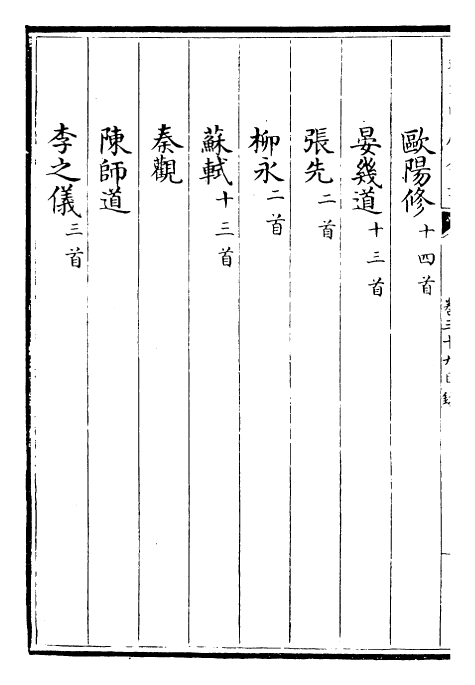 歐陽修十四首
晏幾道十三首
張先二首
柳永二首
蘇軾十三首
秦觀
陳師道
李之儀三首